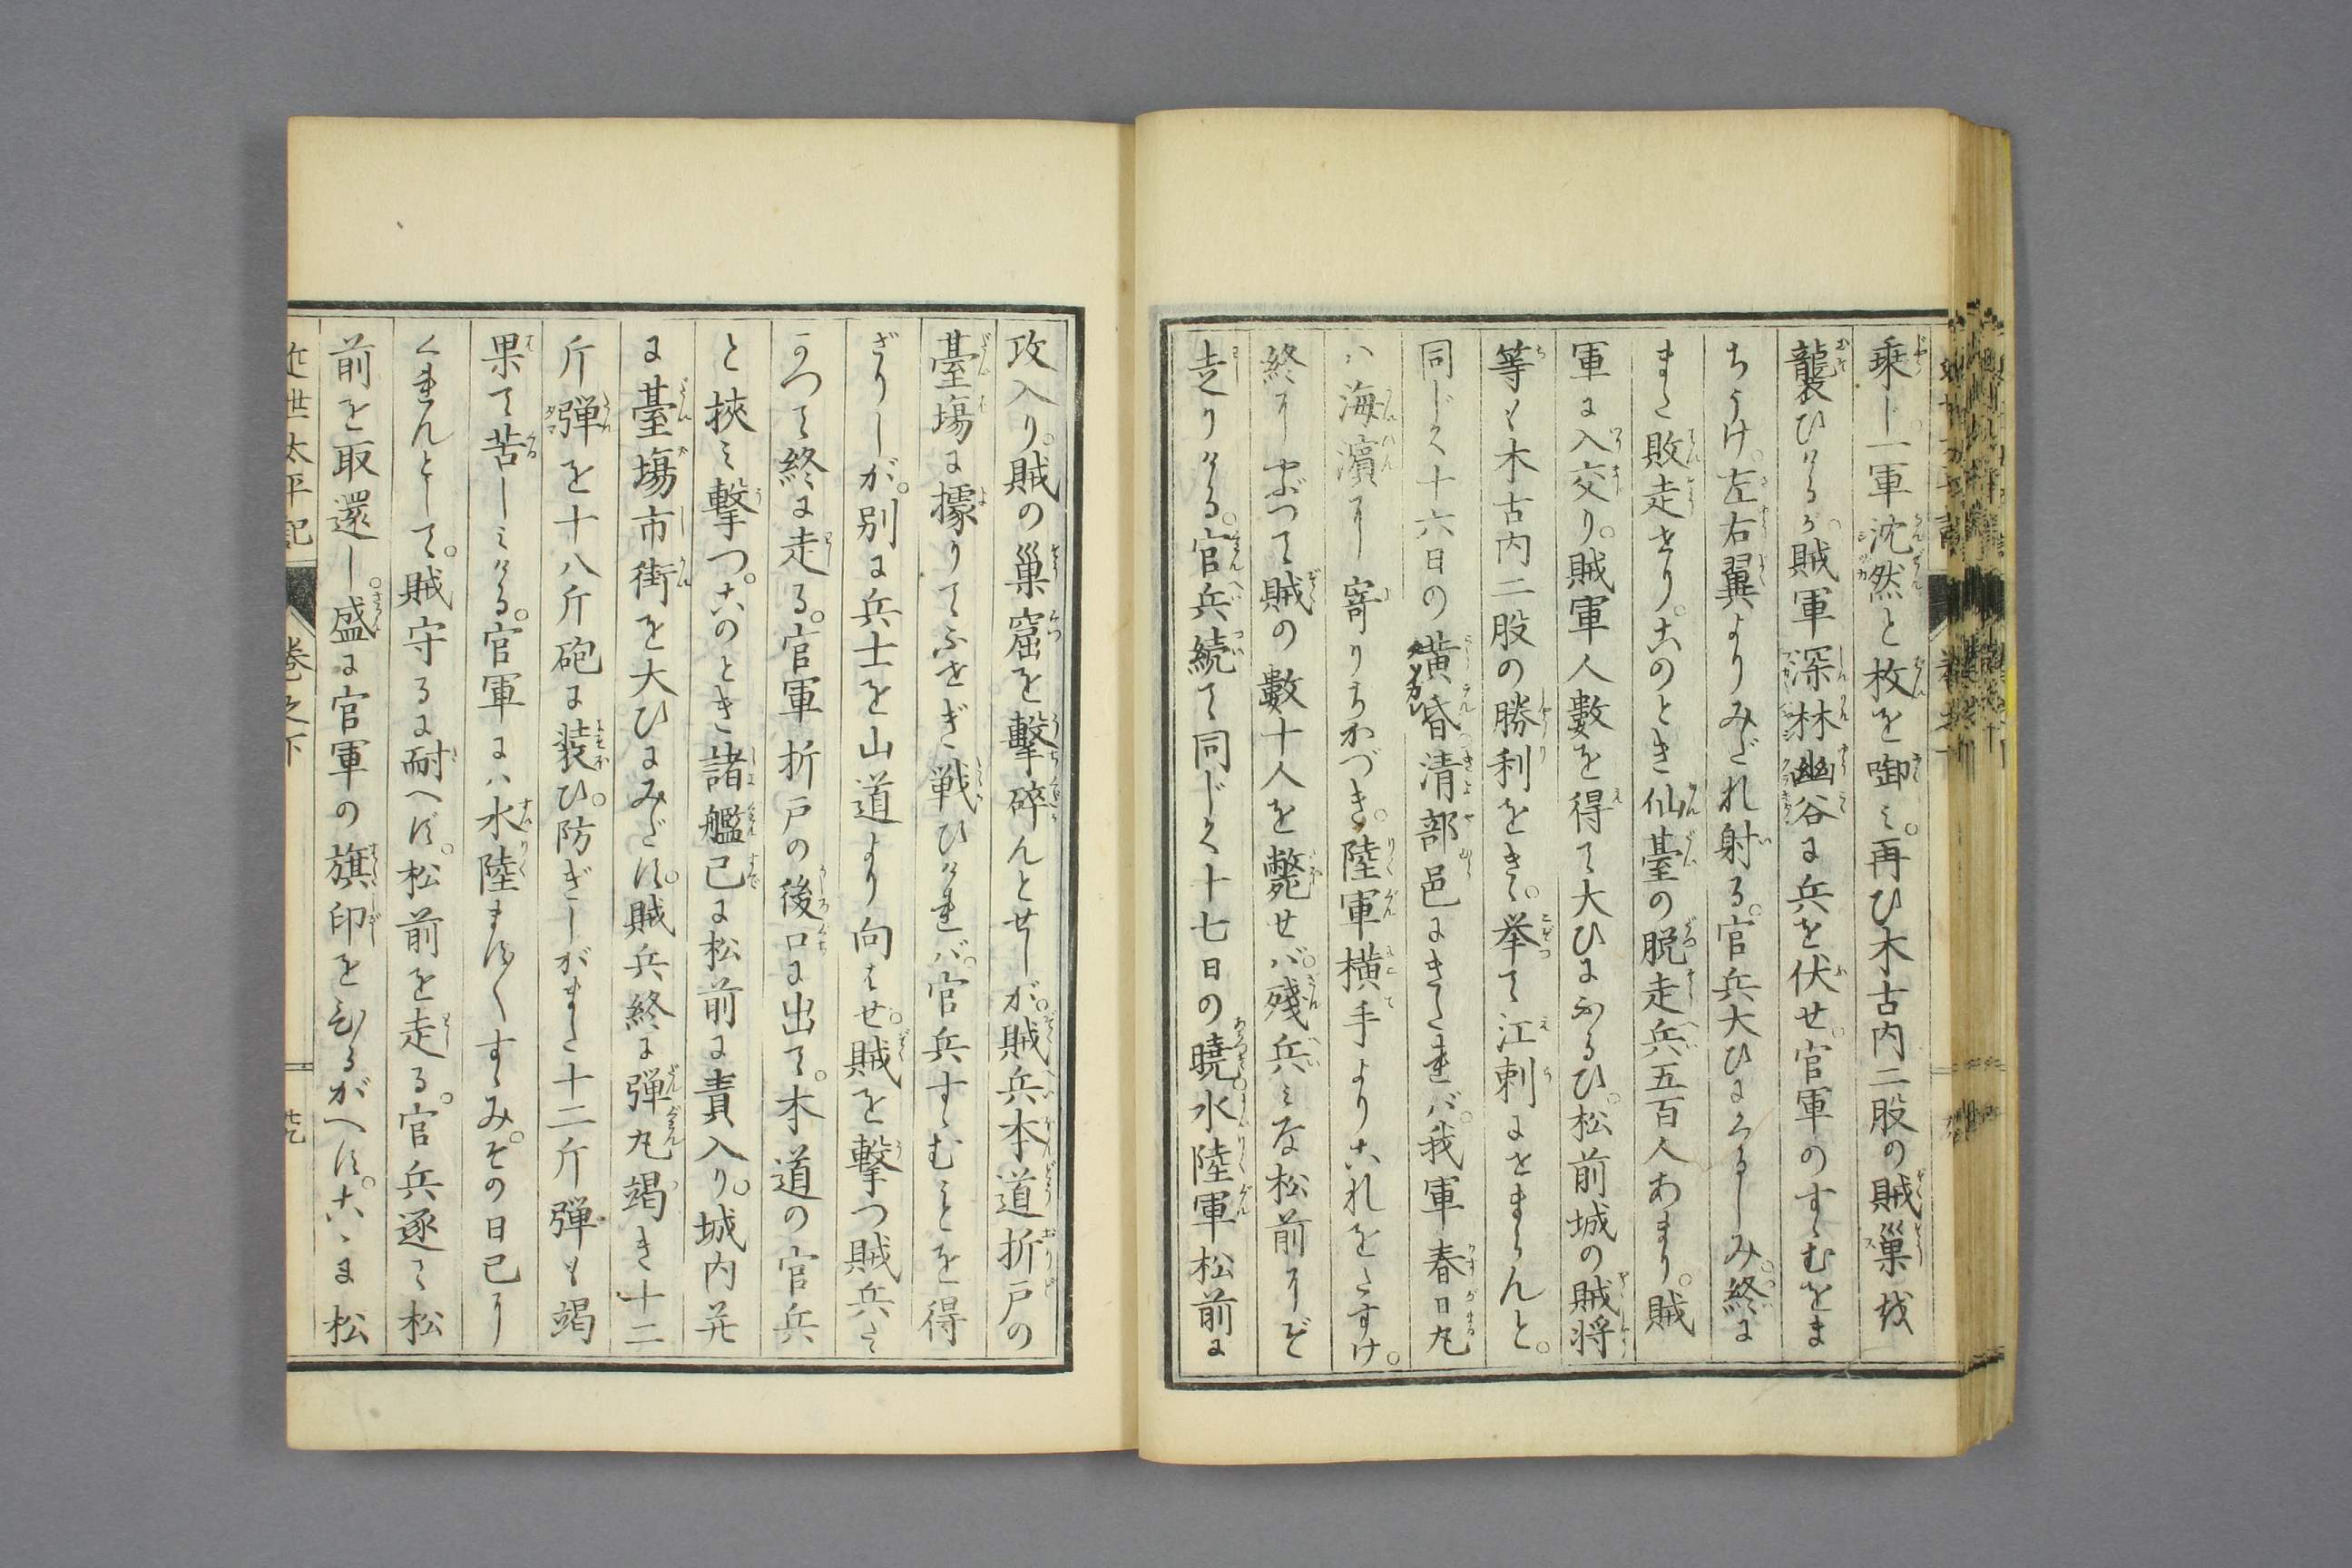 乗じ一軍沈然と枚を啣ミ。再ひ木古内二股の賊巣を
襲ひけるが。賊軍深林幽谷に兵を伏せ。官軍のすゝむをま
ちうけ。左右翼よりみだれ射る。官兵大ひにくるしみ。終に
また敗走せり。このとき仙臺の脱走兵五百人あまり。賊
軍に入交り。賊軍人數を得て大ひにふるひ。松前城の賊将
等も木古内二股の勝利をきゝ。挙て江刺にせまらんと。
同じく十六日の黄昏。清部邑にきたれバ。我軍春日丸
ハ海濱に寄りちかづき。陸軍横手よりこれをたすけ。
終にやぶつて賊の數十人を斃せバ。殘兵ミな松前にぞ
走りける。官兵続て同じく十七日の曉。水陸軍松前に
攻入り。賊の巣窟を撃碎んとせしが。賊兵本道折戸の
臺塲に據りてふせぎ戦ひけれバ。官兵すゝむことを得
ざりしが。別に兵士を山道より向はせ。賊を撃つ賊兵こ
らへかねて終に走る。官軍折戸の後口に出て。本道の官兵
と挾ミ撃つ。このとき諸艦已に松前に責入り。城内并
に臺塲市街を大ひにみだす。賊兵終に弾丸竭き十二
斤弾を十八斤砲に装ひ。防ぎしがまた十二斤弾も竭
果て苦しミける。官軍にハ水陸ますくすゝみ。その日已に
くれんとして。賊守るに耐へず。松前を走る。官兵逐に松
前を取還し。盛に官軍の旗印をひるがへす。こゝに松
近世太平記 巻之下